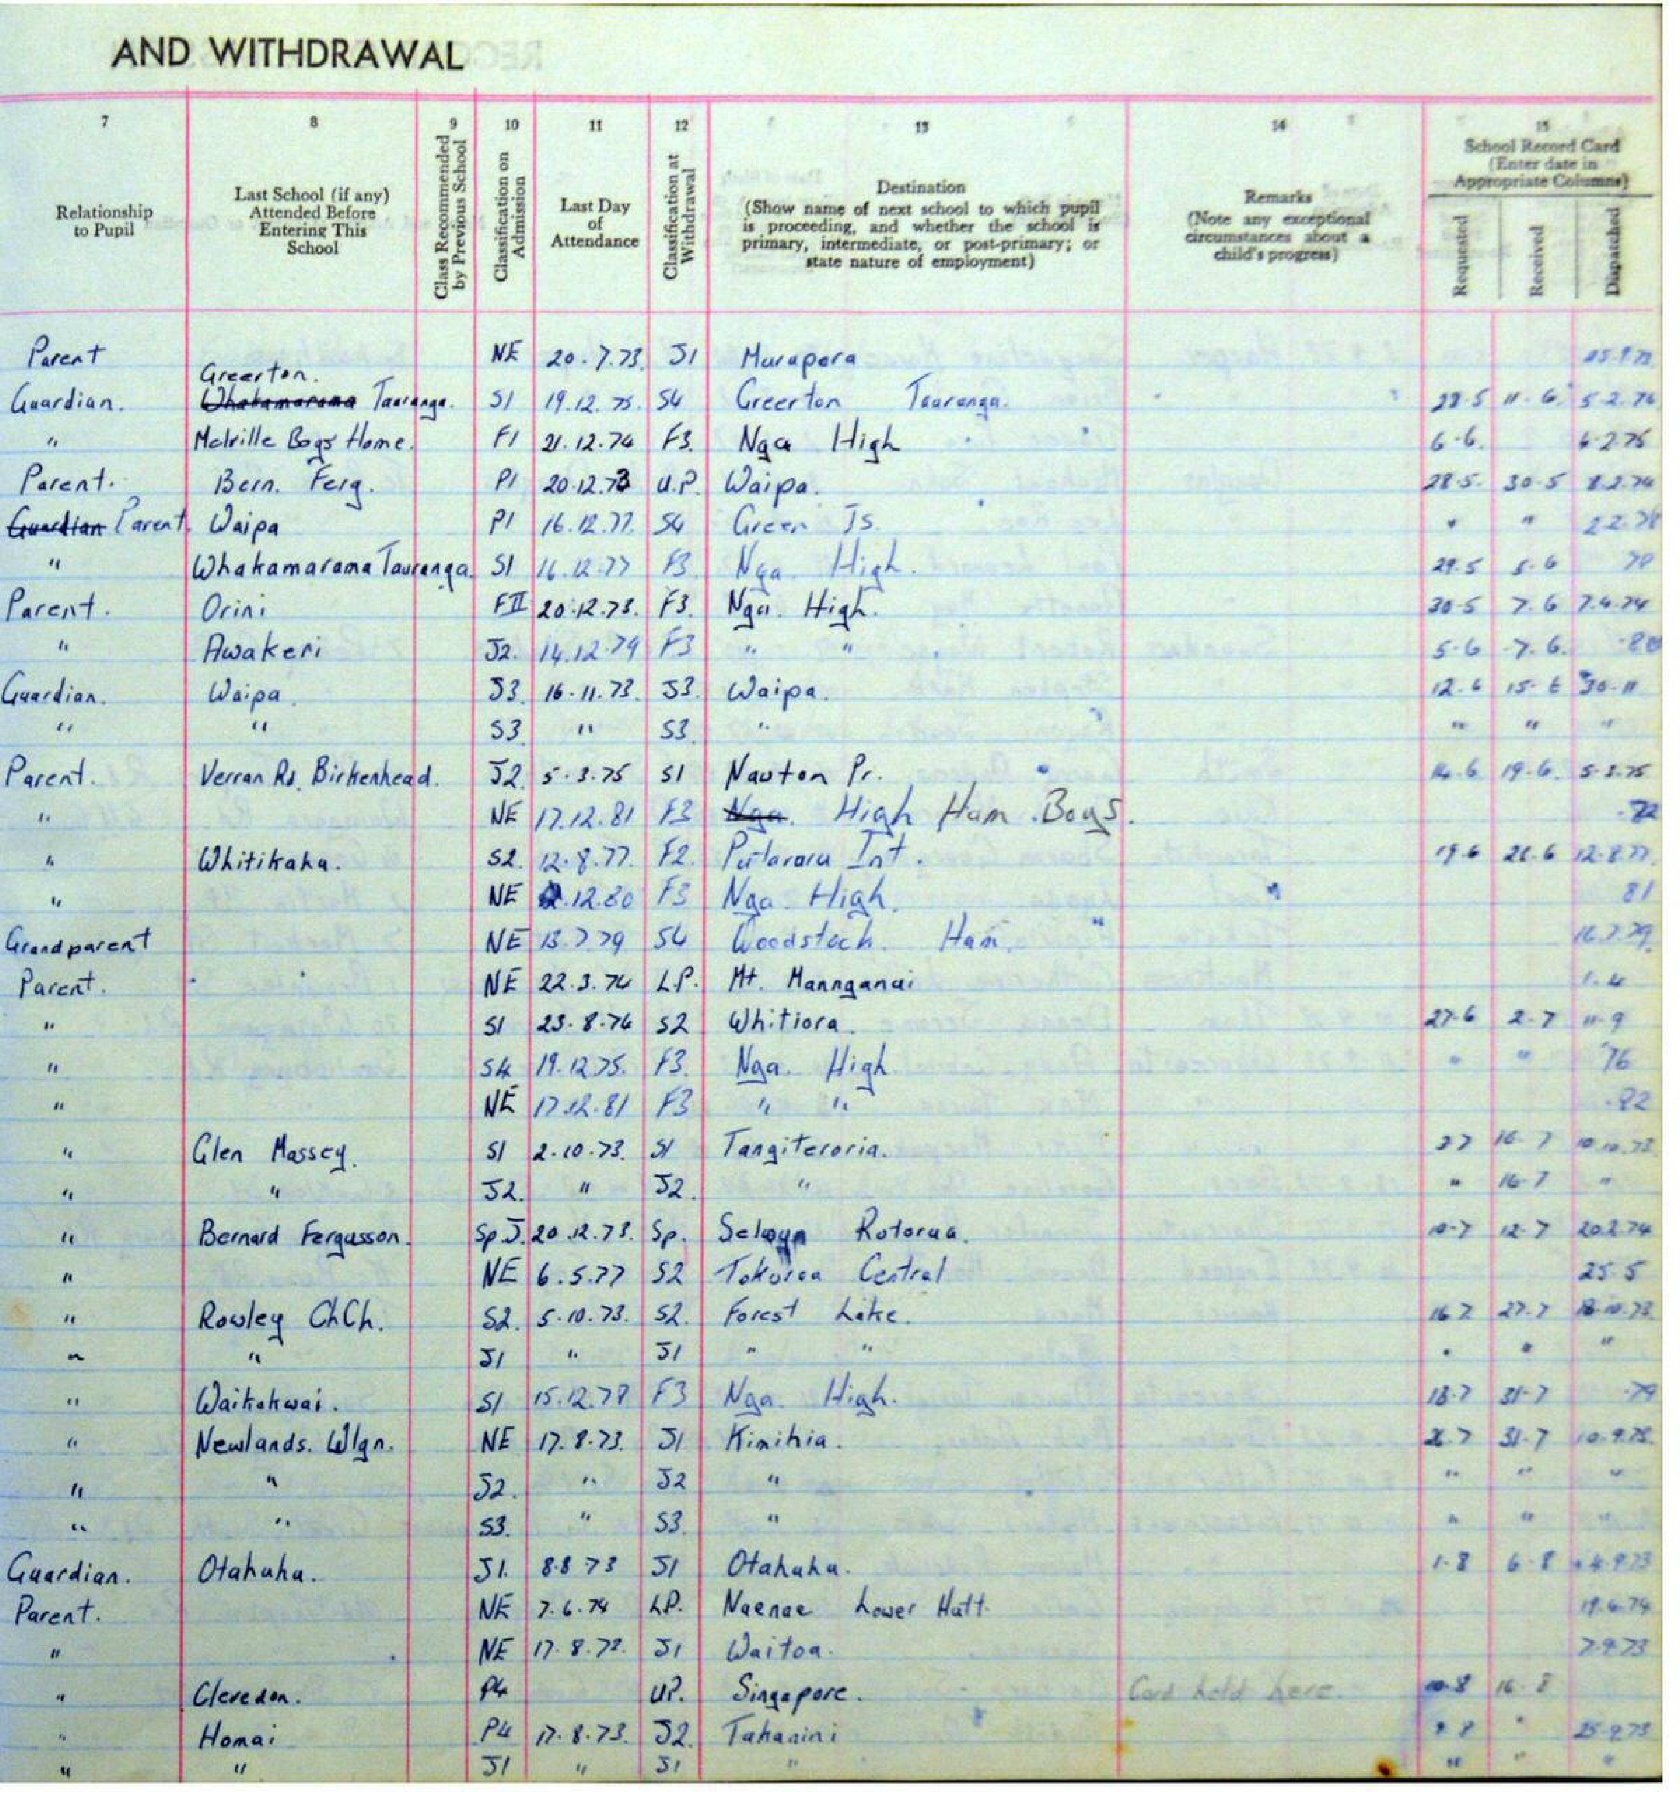 AND WITHDRAWAL
7 8 9 10 11 12 13 14 15
Relationship to Pupil
Last School (if any) Attended Before Entering This School
Class Recommended by Previous School
Classification on Admission
Last Day of Attendance
Classification at Withdrawal
Destination (Show name of next school to which pupil is proceeding, and whether the school is primary, intermediate, or post-primary; or state nature of employment)
Remarks (Note any exceptional circumstances about a child's progress)
School Record Card (Enter date in Appropriate Columns)
Requested Received Dispatched
Parent NE 20.7.73. J1 Murupara
Greerton.
Guardian. Whakamarama Tauranga. S1 19.12.75. S4 Greerton Tauranga. 28.5 11.6. 5.2.76
" Melville Boys Home. F1 21.12.74 F3. Nga High 6-6. 6.2.75
Parent. Bern. Ferg. P1 20.12.73 U.P. Waipa. 28.5. 30.5 8.2.74
Guardian Parent. Waipa P1 16.12.77. S4 Green Is. " " 2.2.78
" Whakamarama Tauranga. S1 16.12.77 F3. Nga. High. 29.5 5.6 78
Parent. Orini FII 20.12.73. F3. Nga. High. 30.5 7.6 7.4.74
" Awakeri J2. 14.12.79 F3 " " 5.6 7.6. -80
Guardian. Waipa. J3. 16.11.73. J3. Waipa. 12.6 15.6 30.11
" " S3 " S3. " " " "
Parent. Verran Rd. Birkenhead. J2. 5.3.75 S1 Nawton Pr. 14.6 19.6. 5.3.75
" NE 17.12.81 F3 Nga. High Ham. Boys.
" Whitikaha. S2. 12.8.77. F2. Putaruru Int. 19.6 26.6 12.8.77.
" NE .12.80 F3 Nga. High. 81
Grandparent NE 13.7.79 S4 Woodstock. Ham. 16.7.79.
Parent. NE 22.3.74 L.P. Mt. Maunganui 1.4
" S1 23.8.74 S2 Whitiora. 27.6 2.7 11.9
" S4 19.12.75. F3. Nga. High " " '76
" NE 17.12.81 F3 " " -82
" Glen Massey. S1 2.10.73. S1 Tangiteroria. 2.7 16.7 10.10.73
" " J2. " J2. " " 16.7 "
" Bernard Fergusson. Sp J. 20.12.73. Sp. Selwyn Rotorua. 10.7 12.7 20.2.74
" NE 6.5.77 S2 Tokoroa Central 25.5
" Rowley ChCh. S2. 5.10.73. S2. Forest Lake. 16.7 27.7
" " J1 " J1 " " " " "
" Waitakwai. S1 15.12.78 F3 Nga. High. 18.7 31.7 -79
" Newlands. Wlgn. NE 17.8.73. J1 Kimihia. 31.7
" " J2. " J2 " " " "
" " S3. " S3. " " " "
Guardian. Otahuhu. J1. 8.8.73 J1 Otahuhu. 1.8 6.8 4.9.73
Parent. NE 7.6.74 L.P. Naenae Lower Hutt. 19.6.74
" NE 17.8.73. J1 Waitoa. 7.9.73
" Clevedon. P4 UP. Singapore. Card held here. 16.8
" Homai P4 17.8.73. J2. Takanini 25.9.73
" " J1 " J1 " " " "